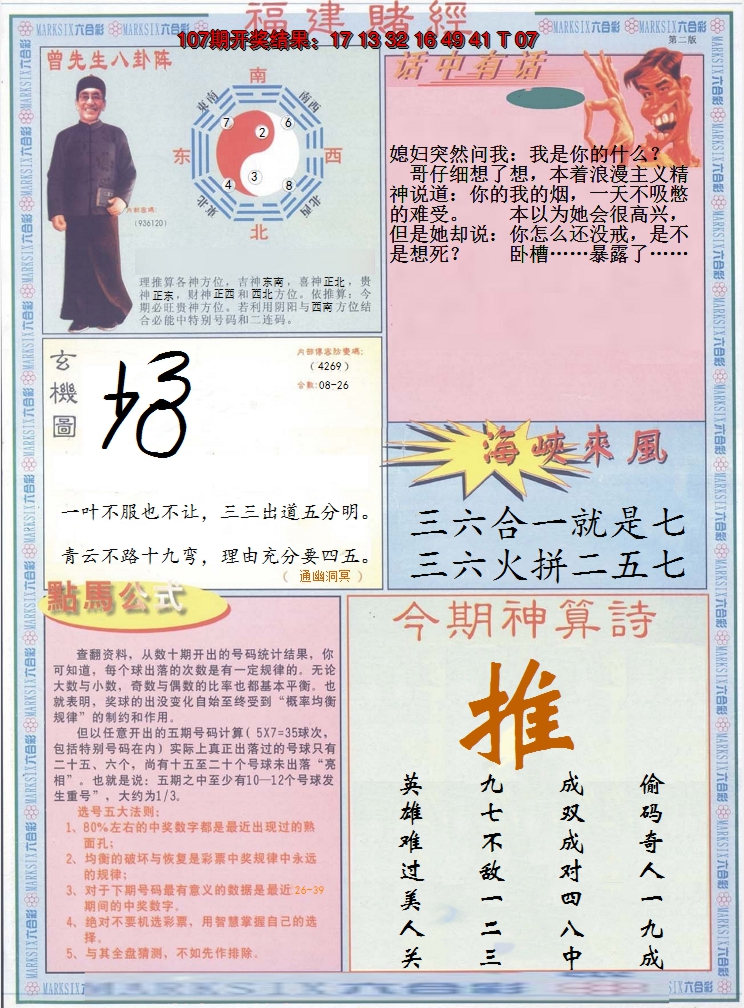 福建賭經
107期开奖结果：17 13 32 16 49 41 T 07
第二版
MARKSIX六合彩
曾先生八卦阵
南
东南
南西
7
2
6
东
西
4
3
8
東北
北西
北
内部密碼：
（936120）
理推算各神方位，吉神东南，喜神正北，贵
神正东，财神正西和西北方位。依推算：今
期必旺贵神方位。若利用阴阳与西南方位结
合必能中特别号码和二连码。
话中有话
媳妇突然问我：我是你的什么？
哥仔细想了想，本着浪漫主义精
神说道：你的我的烟，一天不吸憋
的难受。 本以为她会很高兴，
但是她却说：你怎么还没戒，是不
是想死？ 卧槽……暴露了……
玄機圖
内部傳密防密碼：
（4269）
合数：08-26
一叶不服也不让，三三出道五分明。
青云不路十九弯，理由充分要四五。
（ 通幽洞冥 ）
海峽來風
三六合一就是七
三六火拼二五七
點馬公式
查翻资料，从数十期开出的号码统计结果，你
可知道，每个球出落的次数是有一定规律的。无论
大数与小数，奇数与偶数的比率也都基本平衡。也
就表明，奖球的出没变化自始至终受到“概率均衡
规律”的制约和作用。
但以任意开出的五期号码计算（5X7=35球次，
包括特别号码在内）实际上真正出落过的号球只有
二十五、六个，尚有十五至二十个号球未出落“亮
相”。也就是说：五期之中至少有10—12个号球发
生重号”，大约为1/3。
选号五大法则：
1、80%左右的中奖数字都是最近出现过的熟
面孔；
2、均衡的破坏与恢复是彩票中奖规律中永远
的规律；
3、对于下期号码最有意义的数据是最近26-39
期间的中奖数字。
4、绝对不要机选彩票，用智慧掌握自己的选
择。
5、与其全盘猜测，不如先作排除。
今期神算詩
推
偷码奇人一九成
成双成对四八中
九七不敌一二三
英雄难过美人关